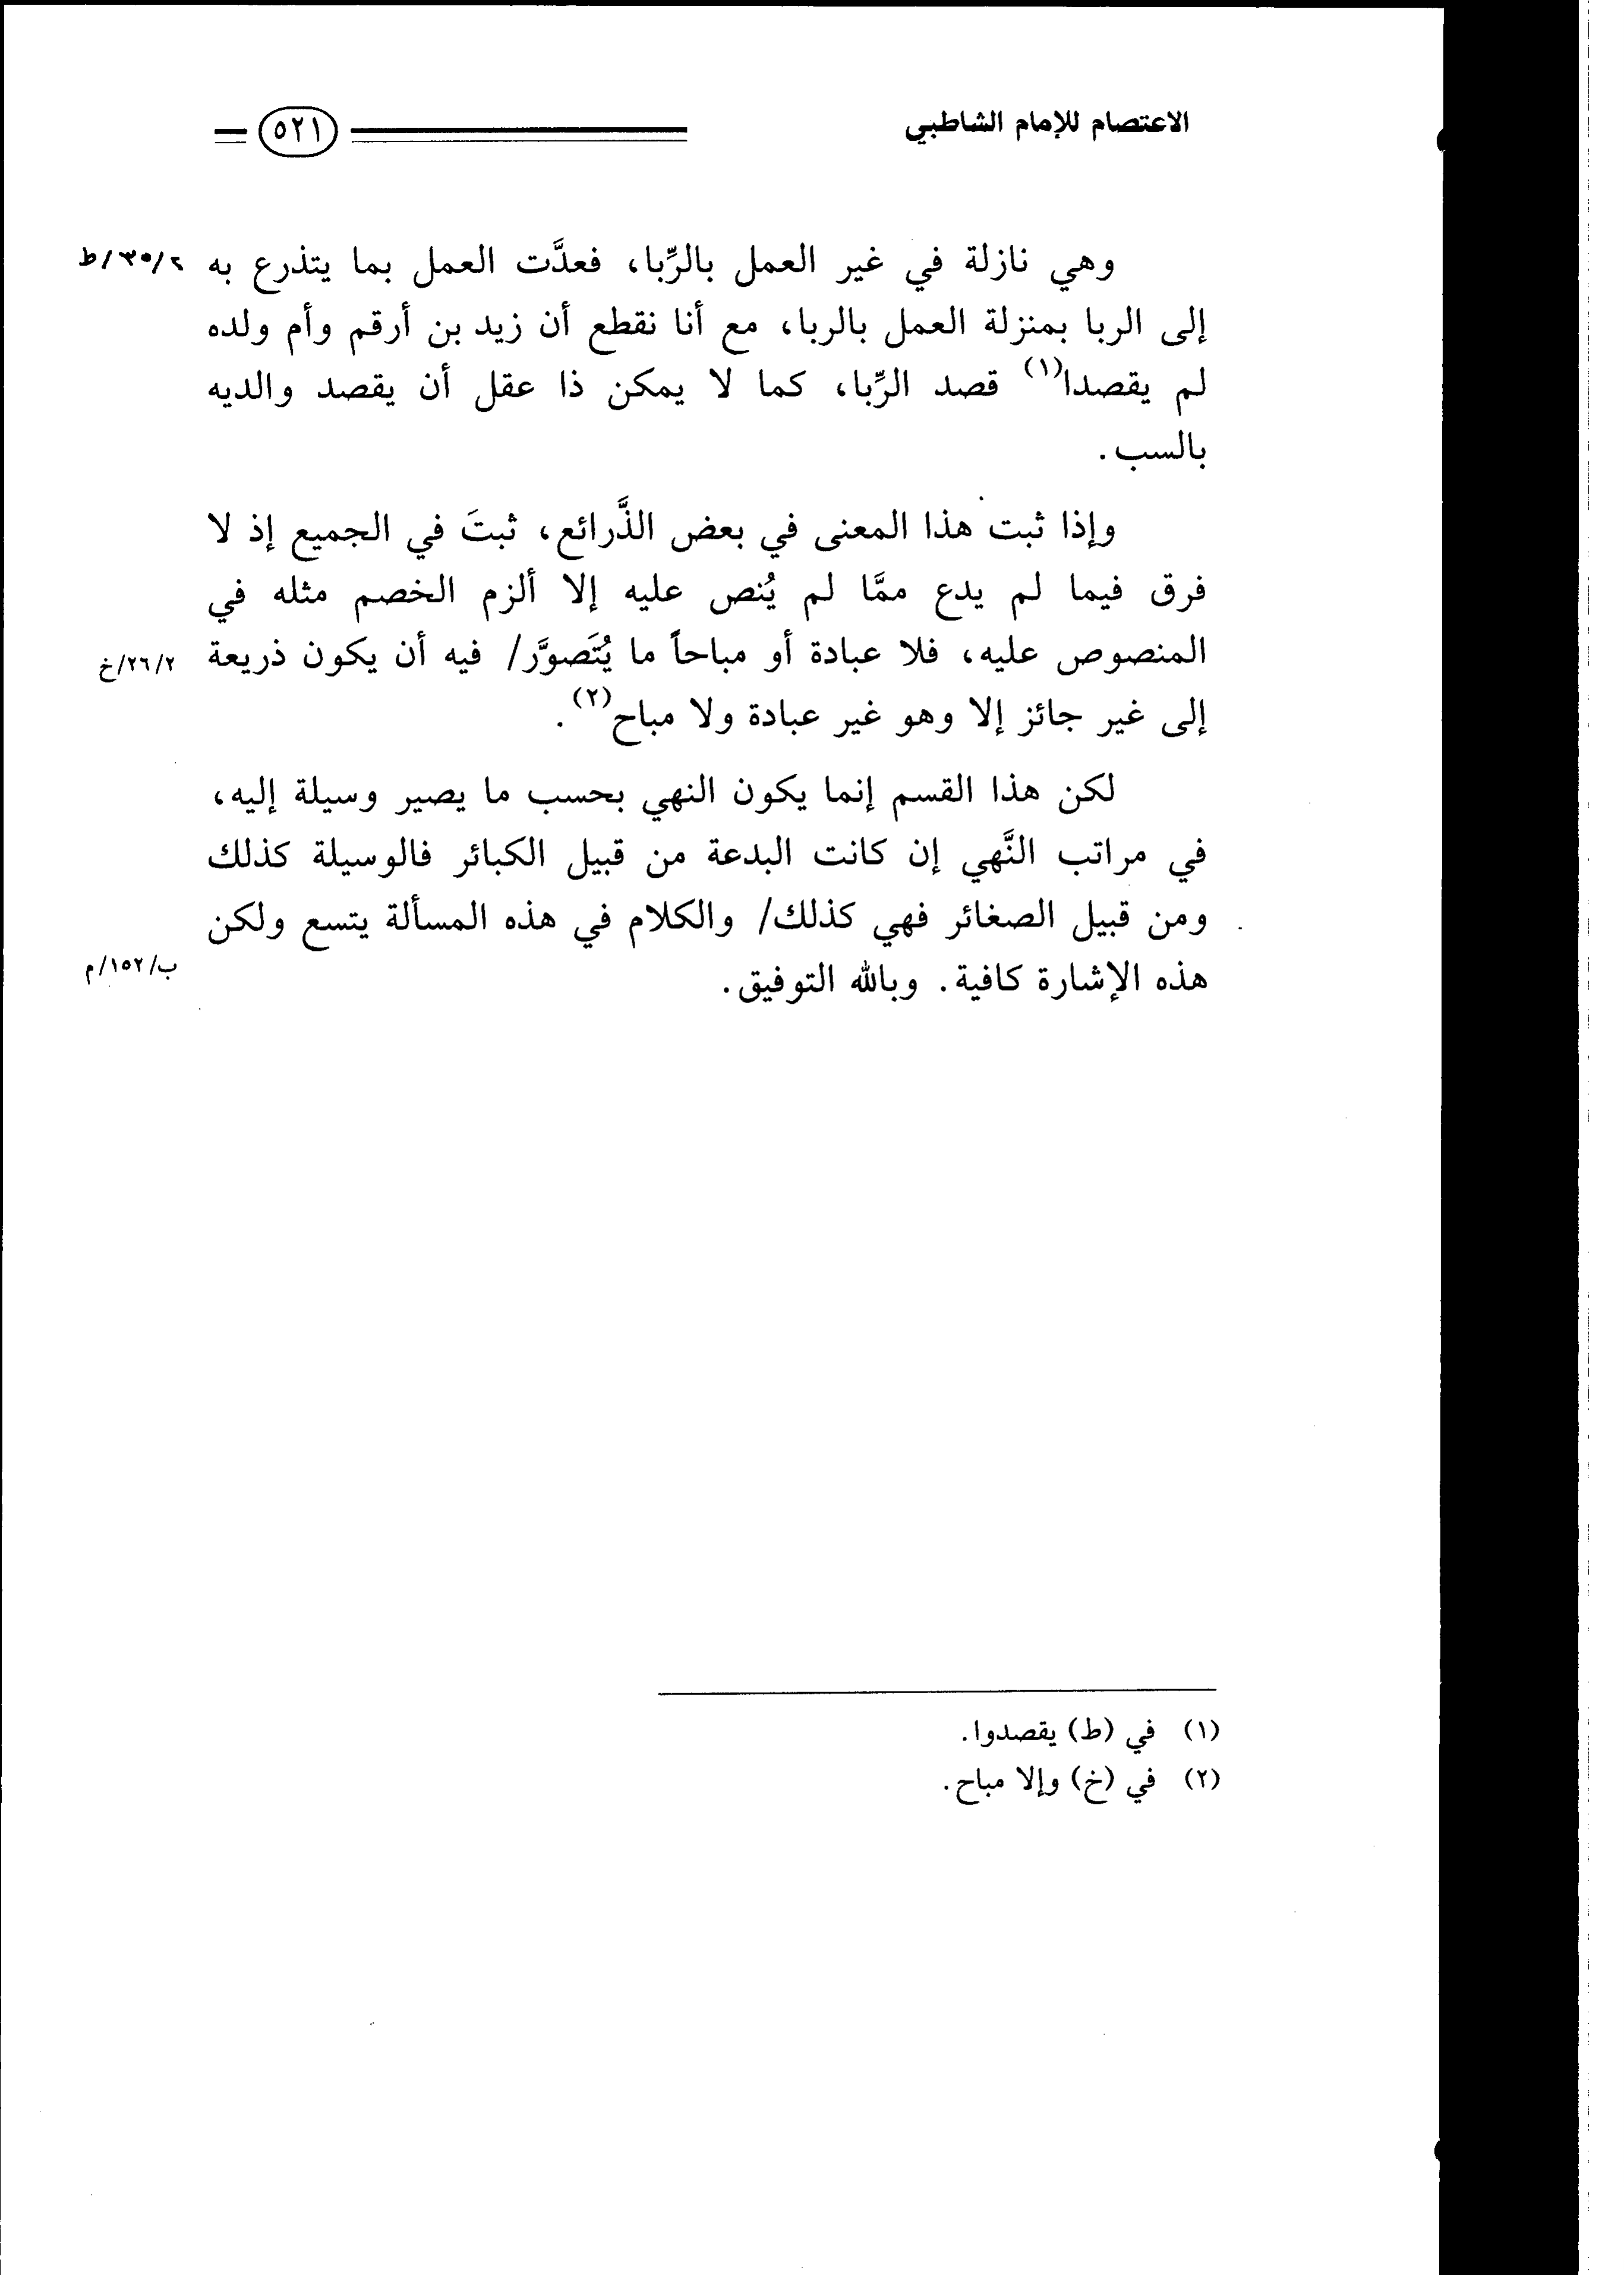 الاعتصام للإمام الشاطبي
٥٢١
وهي نازلة في غير العمل بالرِّبا، فعدَّت العمل بما يتذرع به
إلى الربا بمنزلة العمل بالربا، مع أنا نقطع أن زيد بن أرقم وأم ولده
لم يقصدا(١) قصد الرِّبا، كما لا يمكن ذا عقل أن يقصد والديه
بالسب.
وإذا ثبت هذا المعنى في بعض الذَّرائع، ثبتَ في الجميع إذ لا
فرق فيما لم يدع ممَّا لم يُنص عليه إلا ألزم الخصم مثله في
المنصوص عليه، فلا عبادة أو مباحاً ما يُتَصوَّر/ فيه أن يكون ذريعة
٢/٢٦/خ
إلى غير جائز إلا وهو غير عبادة ولا مباح(٢).
لكن هذا القسم إنما يكون النهي بحسب ما يصير وسيلة إليه،
في مراتب النَّهي إن كانت البدعة من قبيل الكبائر فالوسيلة كذلك
ومن قبيل الصغائر فهي كذلك/ والكلام في هذه المسألة يتسع ولكن
ب/١٥٢/م
هذه الإشارة كافية. وبالله التوفيق.
(١) في (ط) يقصدوا.
(٢) في (خ) وإلا مباح.